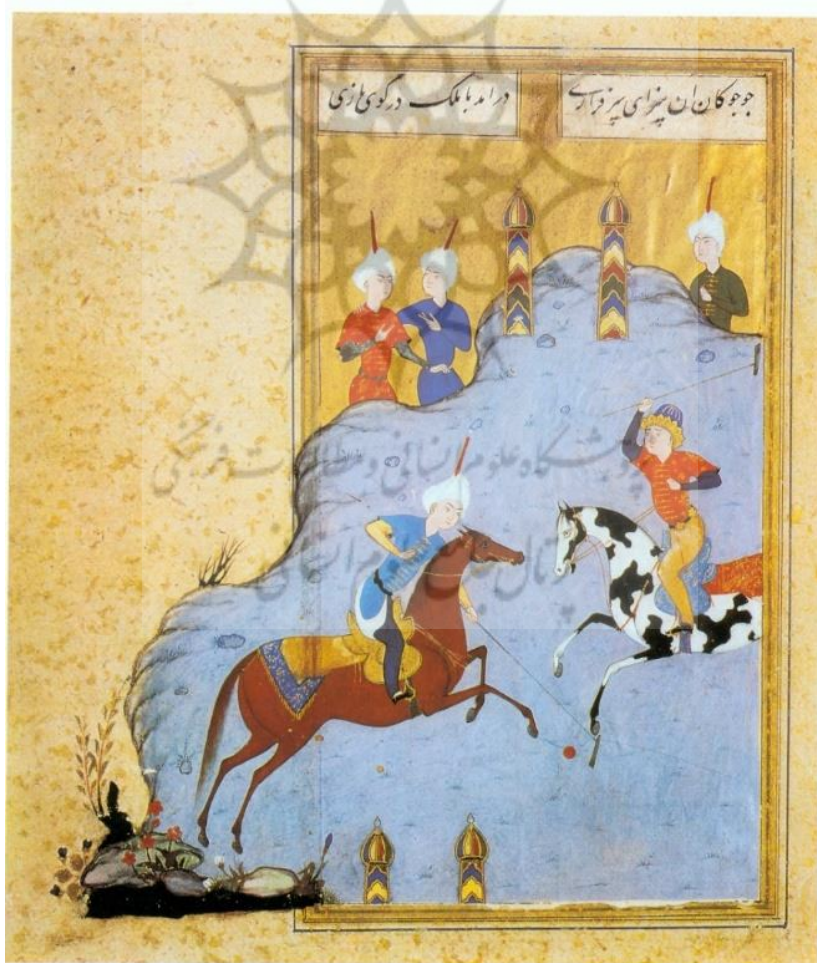 جوجوکان ان سزای سرفرازی درامد با ملک در کوی بازی
پژوهشگاه علوم انسانی و مطالعات فرهنگی
پرتال جامع علوم انسانی